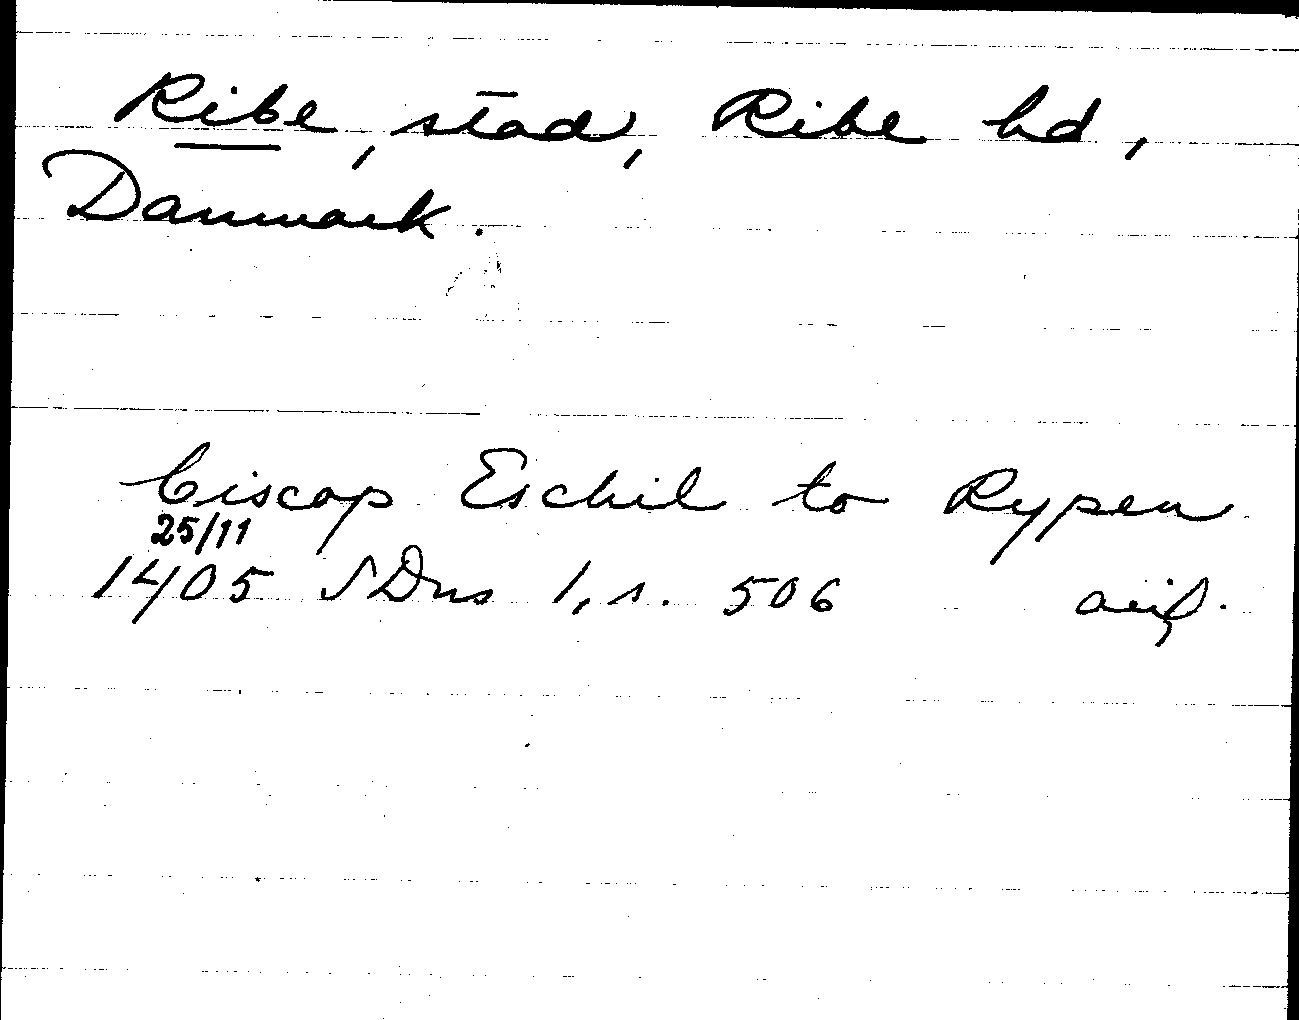 Ribe, stad, Ribe hd,
Danmark.
biscop Eschil to Rypen
25/11
1405 SDns 1, s. 506